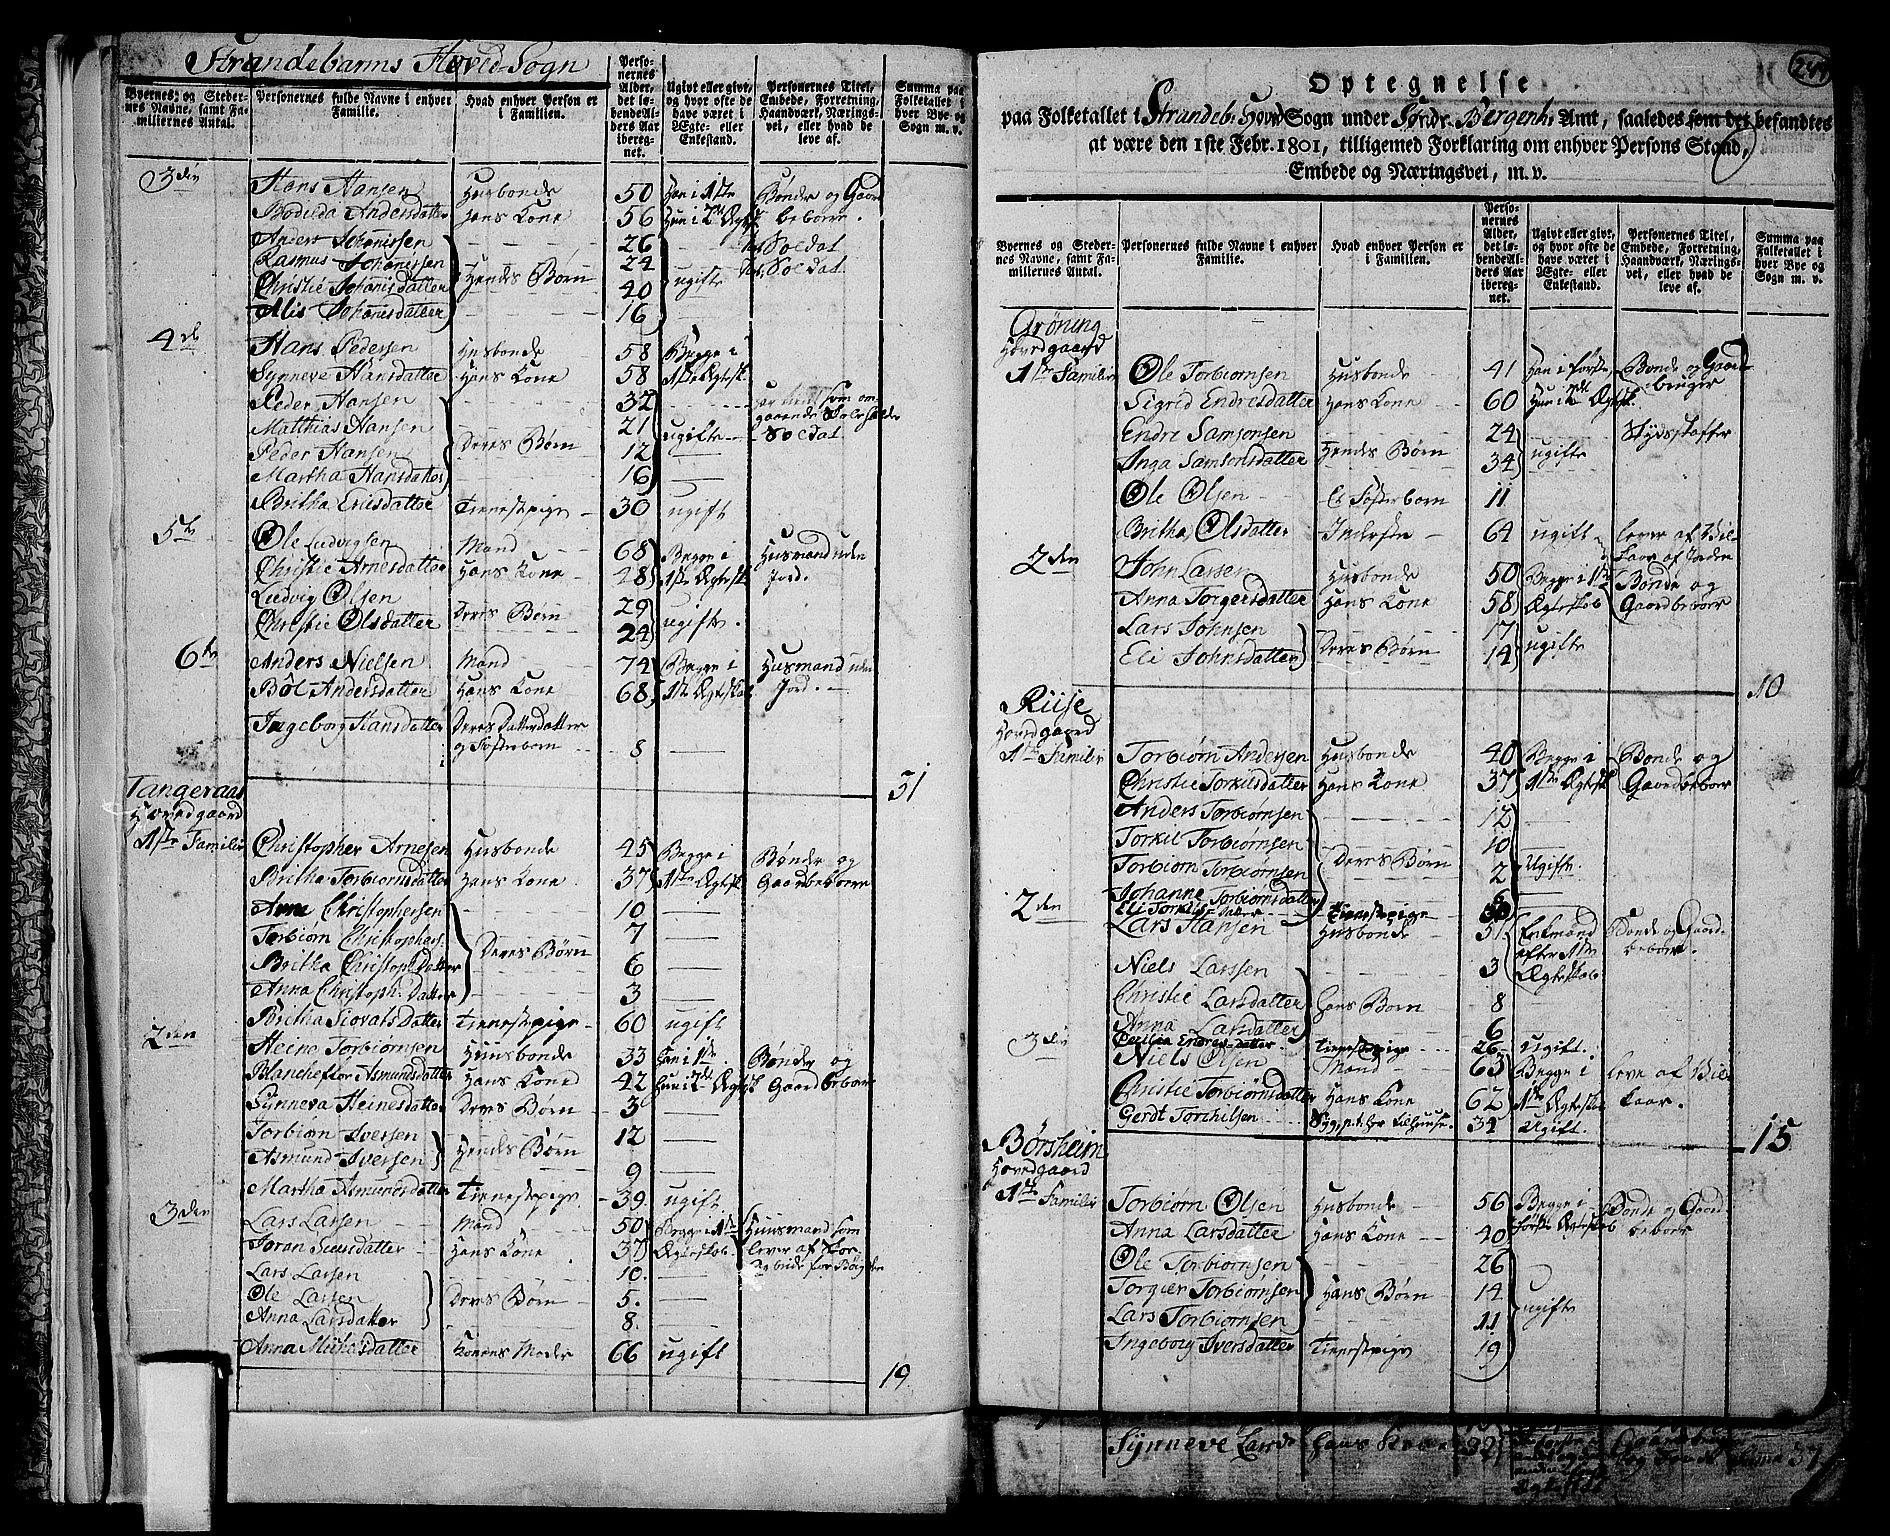 Strandebarms Hoved-Sogn
Byernes og Stedernes Navne, samt Familiernes Antal.
Personernes fulde Navne i enhver Familie.
Hvad enhver Person er i Familien.
Personernes Alder, det løbende Alders Aar iberegnet.
Ugivt eller givt, og hvor ofte de have været i Ægte- eller Enkestand.
Personernes Titel, Embede, Forretning, Haandværk, Næringsvei, eller hvad de leve af.
Summa paa Folketallet i hver Bye og Sogn m. v.
3die
Hans Hansen Husbonde 50 Han i 1ste Bønder og Gaard
Bodilda Andersdatter Hans Kone 56 Hun i 2det Ægtesk. beboere.
Anders Johanissen 26 Soldat
Rasmus Johanissen 24 Soldat
Christie Johanisdatter Hendes Børn 40 ugifte
Alis Johanisdatter 16
4de
Hans Pedersen Husbonde 58 Begge i
Synneve Hansdatter Hans Kone 58 1ste Ægtesk.
Peder Hansen 32 som om
Matthias Hansen 21 ugifte Soldat
Peder Hansen Deres Børn 12
Martha Hansdatter 16
Britha Ericsdatter Tienestepige 30 ugift
5te
Ole Ludvigsen Mand 68 Begge i Husmand uden
Christie Arnesdatter Hans Kone 28 1ste Ægtesk. Jord.
Ludvig Olsen 29
Christie Olsdatter Deres Børn 24 ugifte.
6te
Anders Nielsen Mand 74 Begge i Husmand uden
Bôl Andersdatter Hans Kone 68 1ste Ægteskab Jord.
Ingeborg Hansdatter Deres Datterdatter
og Fosterbarn 8
51
Tangeraas
Hovedgaard
1ste Familie
Christopher Arnesen Husbonde 45 Begge i Bønder og
Britha Torbiornsdatter Hans Kone 37 1ste Ægtesk. Gaardbeboere
Arne Christophersen 10
Torbiørn Christophers. 7
Britha Christoph. Datter Deres Børn 6
Anna Christoph. Datter 3
Britha Siovats Datter Tienestepige 60 ugift
2den
Heine Torbiørnsen Huusbonde 33 Han i 1ste Bønder og
Blancheflor Asmundsdatter Hans Kone 42 Hun i 2det Ægtesk. Gaardbeboere
Synneva Heinesdatter Deres Børn 3
Torbiørn Iversen 12
Asmund Iversen Hendes Børn 9
Martha Asmundsdatter Tienestepige 39. ugift
3die
Lars Larsen Mand 50 Begge i 1ste Huusmand som
Joran Siursdatter Hans Kone 37 Ægteskab. lever af
Lars Larsen 10. Arbeide for Bøigden
Ole Larsen Deres Børn 5.
Anna Larsdatter 8.
Anna Michelsdatter Konens Moder 66 ugift
19
244
Optegnelse
paa Folketallet i Strandeb. Hoved Sogn under Søndr. Bergenh. Amt, saaledes som det befandtes
at være den 1ste Febr. 1801, tilligemed Forklaring om enhver Persons Stand,
Embede og Næringsvei, m. v.
Byernes og Stedernes Navne, samt Familiernes Antal.
Personernes fulde Navne i enhver Familie.
Hvad enhver Person er i Familien.
Personernes Alder, det løbende Alders Aar iberegnet.
Ugivt eller givt, og hvor ofte de have været i Ægte- eller Enkestand.
Personernes Titel, Embede, Forretning, Haandværk, Næringsvei, eller hvad de leve af.
Summa paa Folketallet i hver Bye og Sogn m. v.
Grøning
Hovedgaard
1ste Familie
Ole Torbiørnsen Husbonde 41 Han i første, Bonde og Gaard
Sigrid Endresdatter Hans Kone 60 Hun i 2det Ægtesk. bruger
Endre Samsonsen 24 Skydsskaffer
Inga Samsonsdatter Hendes Børn 34 ugifte
Ole Olsen Et Fosterbarn 11
Britha Olsdatter Inderste 64 ugift lever af Vil-
kaar af Jorden
2den
John Larsen Husbonde 50 Begge i 1ste Bonde og
Anna Torgersdatter Hans Kone 58 Ægteskab Gaardbeboer
Lars Johnsen 17
Eli Johnsdatter Deres Børn 14 ugifte
10
Riise
Hovedgaard
1ste Familie
Torbiørn Andersen Husbonde 40 Begge i Bonde og
Christie Torkilsdatter Hans Kone 37 1ste Ægtesk. Gaardbeboer
Anders Torbiørnsen 12
Torkil Torbiørnsen 10
Torbiørn Torbiørnsen Deres Børn 2 Ugifte
Johanne Torbiørnsdatter 6
Eli Torkils-datter Tienestepige
2den
Lars Hansen Husbonde 51 Enkemand Bonde og Gaard-
efter 1ste beboer.
Niels Larssen 3 Ægteskab
Christie Larsdatter Hans Børn 8
Anna Larsdatter 6
Cecilia Endres-datter Tienestepige 26 Ugift.
3die
Niels Olsen Mand 63 Begge i leve af Vil-
Christie Torbiørnsdatter Hans Kone 62 1ste Ægteskab kaar.
Gerdt Torchilsen 34 Ugift.
15
Børsheim
Hovedgaard
1ste Familie
Torbiørn Olsen Husbonde 56 Begge i Bonde og Gaard-
Anna Larsdatter Hans Kone 40 første Ægteskab beboer
Ole Torbiørnsen 26
Torgier Torbiørnsen Hans Børn 14 ugifte
Lars Torbiørnsen 11
Ingeborg Iversdatter Tienestepige 19
Synneve Larsd. Hans Kone 32
37